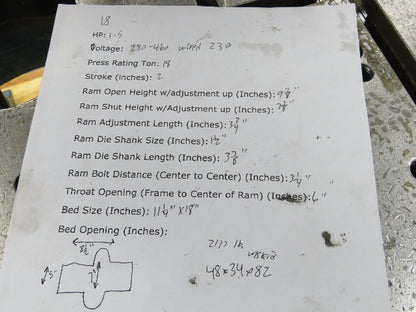 18
HP: 1.5
Voltage: 230-460 wired 230
Press Rating Ton: 18
Stroke (Inches): 2
Ram Open Height w/Adjustment up (Inches): 9 7/8"
Ram Shut Height w/Adjustment up (Inches): 7 7/8"
Ram Adjustment Length (Inches): "
Ram Die Shank Size (Inches): 1 1/2"
Ram Die Shank Length (Inches): "
Ram Bolt Distance (Center to Center) (Inches): 3 1/4"
Throat Opening (Frame to Center of Ram) (Inches): 6"
Bed Size (Inches): 11 1/4" X 18"
Bed Opening (Inches):
8 1/2"
5"
7"
2137 lb
w/skid
48x34x82